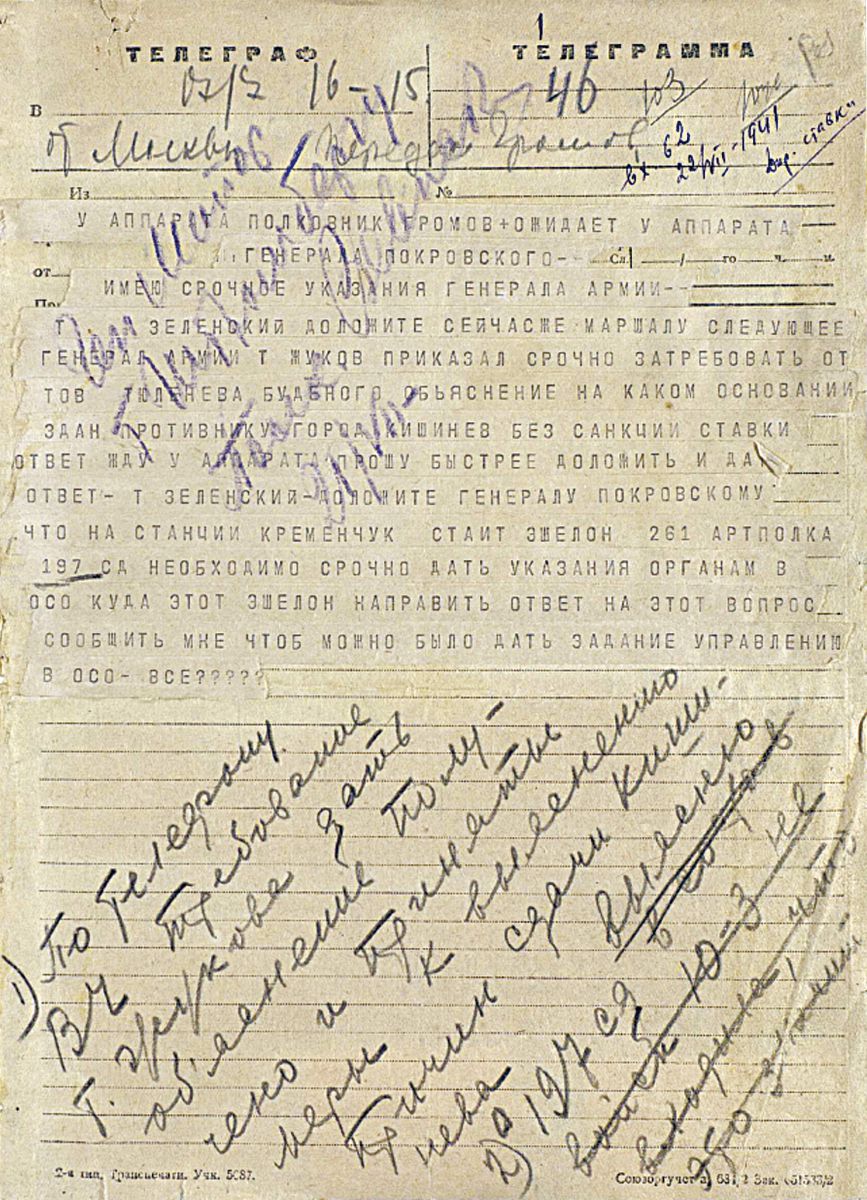 1
ТЕЛЕГРАФ ТЕЛЕГРАММА
В 16-15 46
от Москвы Передал Громов
вх 62
22/VII-1941
Из №
У АППАРАТА ПОЛКОВНИК ГРОМОВ+ОЖИДАЕТ У АППАРАТА
ГЕНЕРАЛА ПОКРОВСКОГО- Сл. го ч. м
от
ИМЕЮ СРОЧНОЕ УКАЗАНИЯ ГЕНЕРАЛА АРМИИ--
Т ЗЕЛЕНСКИЙ ДОЛОЖИТЕ СЕЙЧАСЖЕ МАРШАЛУ СЛЕДУЮЩЕЕ
ГЕНЕРАЛ АРМИИ Т ЖУКОВ ПРИКАЗАЛ СРОЧНО ЗАТРЕБОВАТЬ ОТ
ТОВ ТЮЛЕНЕВА БУДЕНОГО ОБЬЯСНЕНИЕ НА КАКОМ ОСНОВАНИИ-
ЗДАН ПРОТИВНИКУ ГОРОД КИШИНЕВ БЕЗ САНКЦИИ СТАВКИ
ОТВЕТ ЖДУ У АППАРАТА ПРОШУ БЫСТРЕЕ ДОЛОЖИТЬ И ДА
ОТВЕТ- Т ЗЕЛЕНСКИЙ-ДОЛОЖИТЕ ГЕНЕРАЛУ ПОКРОВСКОМУ
.ЧТО НА СТАНЦИИ КРЕМЕНЧУК СТАИТ ЭШЕЛОН 261 АРТПОЛКА
197 СД НЕОБХОДИМО СРОЧНО ДАТЬ УКАЗАНИЯ ОРГАНАМ В
ОСО КУДА ЭТОТ ЭШЕЛОН НАПРАВИТЬ ОТВЕТ НА ЭТОТ ВОПРОС
СООБЩИТЬ МНЕ ЧТОБ МОЖНО БЫЛО ДАТЬ ЗАДАНИЕ УПРАВЛЕНИЮ
В ОСО- ВСЕ?????
1) По телефону
ВЧ требование
т. Жукова дать
об'яснение полу-
чено и приняты
меры к выяснению
причин сдачи Киши-
нева
2) 197 сд в состав
войск 10-3 не
входила, что
2-я тип. Трансп­ечати. Учк. 5087.